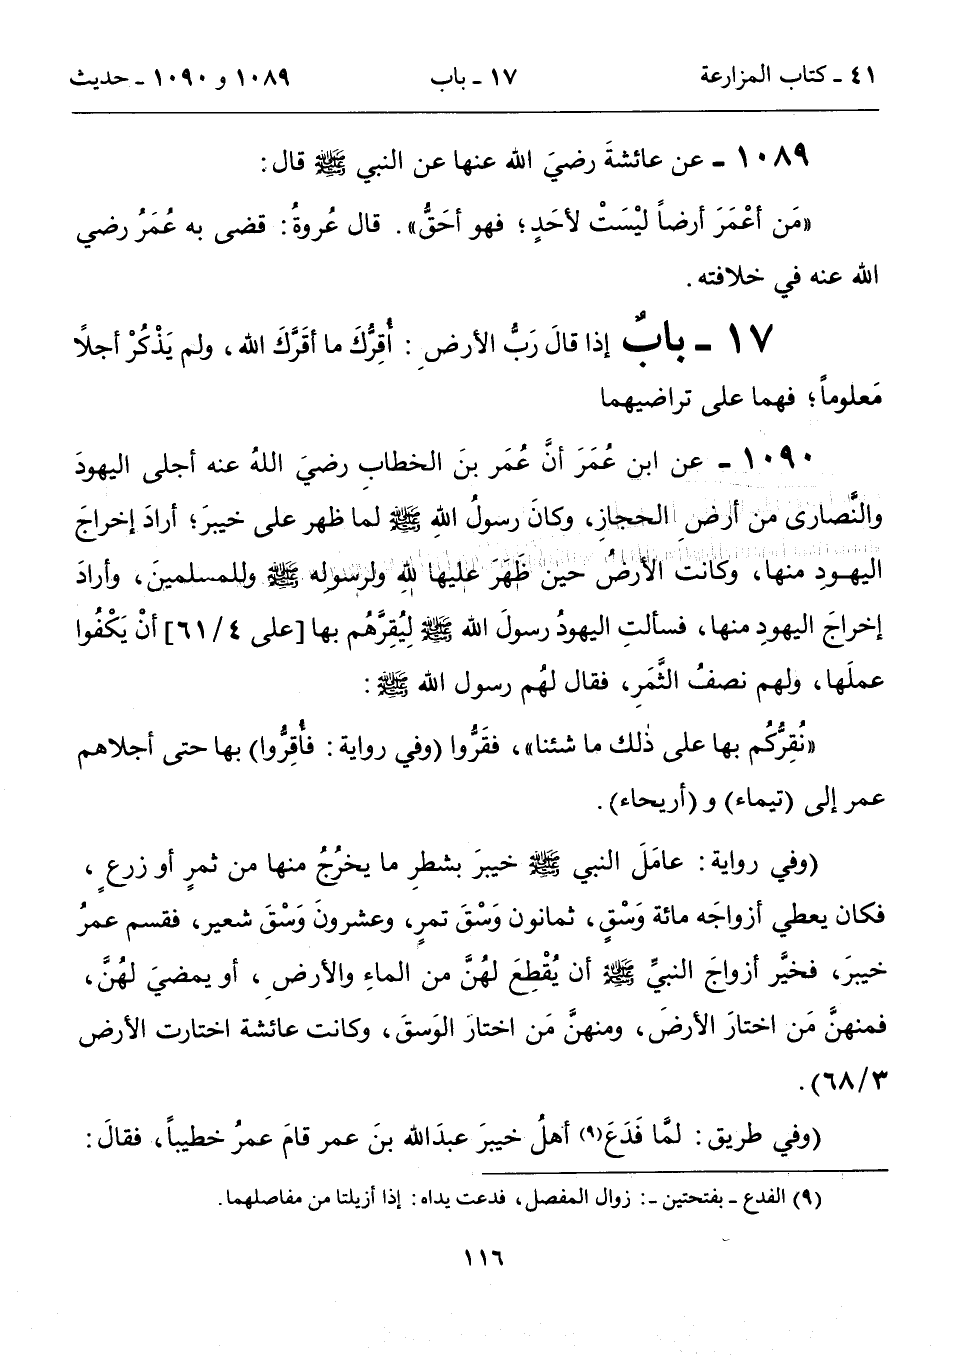 ٤١ ـ كتاب المزارعة ١٧ ـ باب ١٠٨٩ و ١٠٩٠ ـ حديث
١٠٨٩ ـ عن عائشةَ رضيَ الله عنها عن النبي ﷺ قال:
«مَن أعْمَرَ أرضاً ليْسَتْ لأحَدٍ؛ فهو أحَقُّ». قال عُروةُ: قضى به عُمَرُ رضي
الله عنه في خلافته.
١٧ ـ بابٌ إذا قالَ رَبُّ الأرضِ: أُقِرُّكَ ما أقَرَّكَ الله، ولم يَذْكُرْ أجلًا
مَعلوماً؛ فهما على تراضيهما
١٠٩٠ ـ عن ابن عُمَرَ أنَّ عُمَر بنَ الخطابِ رضيَ اللهُ عنه أجلى اليهودَ
والنَّصارى من أرضِ الحجازِ، وكانَ رسولُ اللهِ ﷺ لما ظهر على خيبرَ؛ أرادَ إخراجَ
اليهودِ منها، وكانت الأرضُ حين ظَهَرَ عليها للهِ ولرسولِه ﷺ وللمسلمينَ، وأرادَ
إخراجَ اليهودِ منها، فسألتِ اليهودُ رسولَ الله ﷺ لِيُقِرَّهُم بها [على ٤/ ٦١] أنْ يَكْفُوا
عملَها، ولهم نصفُ الثَّمَرِ، فقال لهُم رسول الله ﷺ:
«نُقِرُّكُم بها على ذٰلك ما شئنا»، فقَرُّوا (وفي رواية: فأُقِرُّوا) بها حتى أجلاهم
عمر إلى (تيماء) و (أريحاء).
(وفي رواية: عامَلَ النبي ﷺ خيبرَ بشطرِ ما يخرُجُ منها من ثمرٍ أو زرعٍ،
فكان يعطي أزواجَه مائة وَسْقٍ، ثمانون وَسْقَ تمرٍ، وعشرونَ وَسْقَ شعير، فقسم عمرُ
خيبرَ، فخيَّر أزواجَ النبيِّ ﷺ أن يُقْطِعَ لهُنَّ من الماءِ والأرضِ، أو يمضيَ لهُنَّ،
فمنهنَّ مَن اختارَ الأرضَ، ومنهنَّ مَن اختارَ الوَسقَ، وكانت عائشة اختارت الأرض
٣/ ٦٨).
(وفي طريق: لمَّا فَدَعَ(٩) أهلُ خيبرَ عبدَالله بنَ عمر قامَ عمرُ خطيباً، فقالَ:
(٩) الفدع ـ بفتحتين ـ: زوال المفصل، فدعت يداه: إذا أزيلتا من مفاصلهما.
١١٦